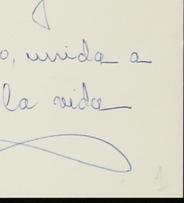 o, unida a
la vida
1